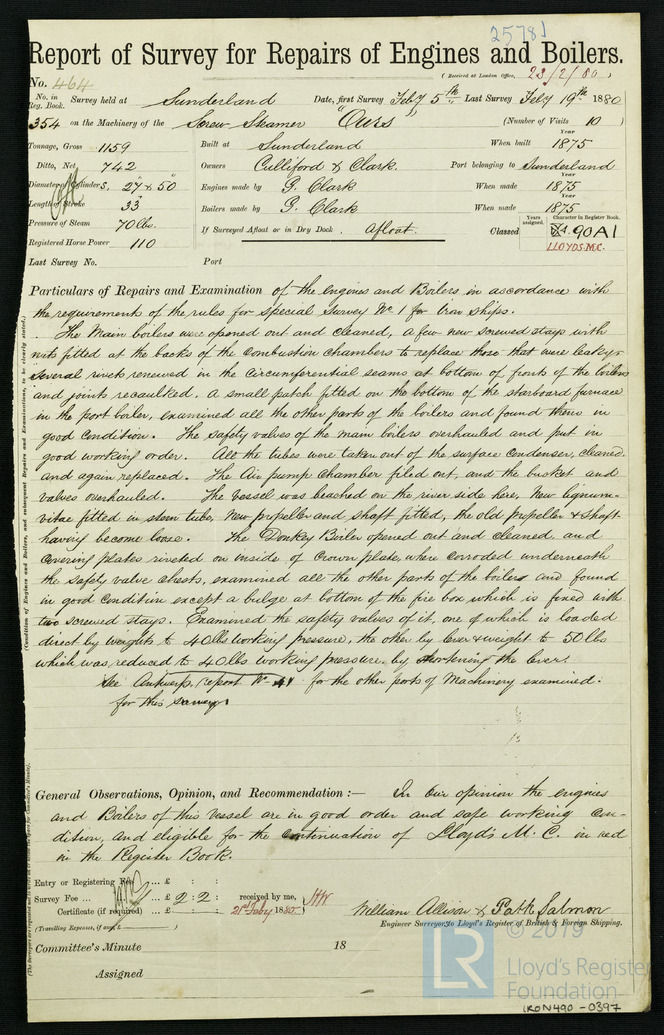 25781
Report of Survey for Repairs of Engines and Boilers.
(Received at London Office, 23/2/80)
No. 464
No. in Reg. Book. Survey held at Sunderland Date, first Survey Feby 5th Last Survey Feby 19th 1880
354 on the Machinery of the Screw Steamer "Ours" (Number of Visits 10)
Tonnage, Gross 1159 Built at Sunderland When built Year 1875
Ditto, Net 742 Owners Culliford & Clark. Port belonging to Sunderland
Diameter of Cylinders, 27" & 50" Engines made by G. Clark When made Year 1875
Length of Stroke 33" Boilers made by G. Clark When made Year 1875
Pressure of Steam 70 lbs. If Surveyed Afloat or in Dry Dock. Afloat. Classed Years assigned. Character in Register Book. 90 A1
Registered Horse Power 110 LLOYDS.M.C.
Last Survey No. Port
Particulars of Repairs and Examination of the engines and Boilers in accordance with
the requirement of the rules for special Survey No 1 for iron ships.
The Main boilers were opened out and cleaned, a few new screwed stays with
nuts fitted at the backs of the combustion chambers to replace those that were leaky,
several rivets renewed in the circumferential seams at bottom of fronts of the boilers
and joints recaulked. A small patch fitted on the bottom of the starboard furnace
in the port boiler, examined all the other parts of the boilers and found them in
good condition. The safety valves of the main boilers overhauled and put in
good working order. All the tubes were taken out of the surface condenser, cleaned
and again replaced. The Air pump chamber filed out, and the bucket and
valves overhauled. The vessel was beached on the river side here, New lignum-
vitae fitted in stern tube, New propeller and shaft fitted, the old propeller & shaft
having become loose. The Donkey Boiler opened out and cleaned and
covering plates riveted on inside of crown plate, where corroded underneath
the safety valve chests, examined all the other parts of the boilers and found
in good condition except a bulge at bottom of the fire box which is fixed with
two screwed stays. Examined the safety valves of it, one of which is loaded
direct by weights to 40 lbs working pressure, the other by lever & weight to 50 lbs
which was reduced to 40 lbs working pressure, by shortening the lever.
See Antwerp, report No 44 for the other parts of Machinery examined
for this survey.
(Condition of Engines and Boilers, and subsequent Repairs and Examinations, to be clearly stated.)
General Observations, Opinion, and Recommendation :— In our opinion the engines
and Boilers of this vessel are in good order and safe working con-
dition, and eligible for the continuation of Lloyd's M. C. in red
in the Register Book.
Entry or Registering Fee ... £ : :
Survey Fee ... ... £ 2 : 2 : received by me,
Certificate (if required) ... £ : : 21st Feby 1880
(Travelling Expenses, if any, £ )
William Allison & Patk Salmon
Engineer Surveyors to Lloyd's Register of British & Foreign Shipping.
Committee's Minute 18
Assigned
LR
© 2019
Lloyd's Register
Foundation
IRON490-0397